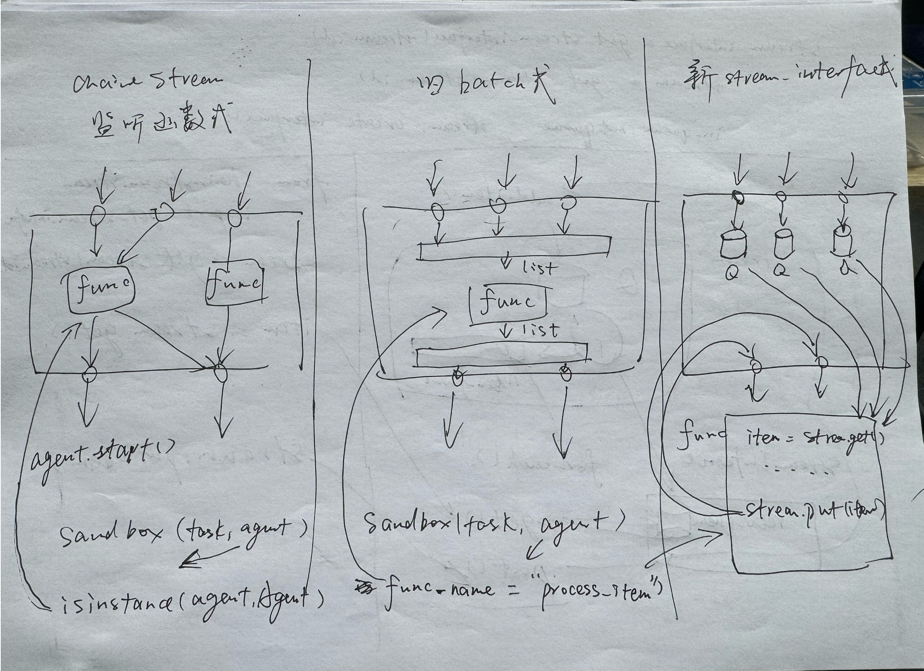 chaine stream
监听函数式
func
func
agent.start()
Sandbox (task, agent)
isinstance(agent, Agent)
旧 batch式
list
func
list
Sandbox(task, agent)
func_name = "process_item")
新 stream_interface式
Q
Q
Q
func
item = strea.get()
......
stream.put(item)